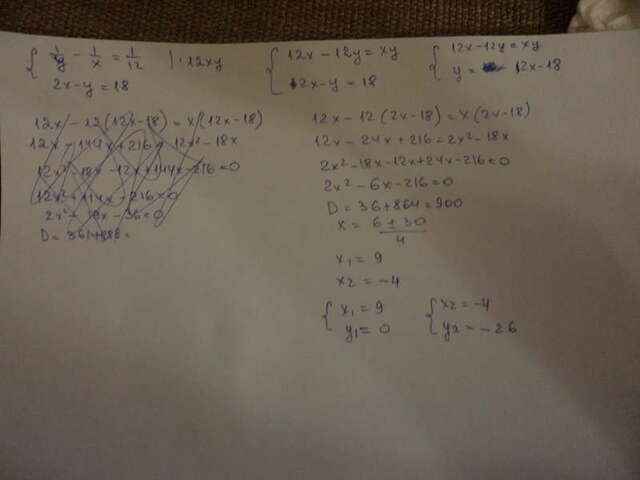 { 1/y - 1/x = 1/12 | · 12xy
2x - y = 18
{ 12x - 12y = xy
2x - y = 18
{ 12x - 12y = xy
y = 2x - 18
12x - 12(12x - 18) = x(12x - 18)
12x - 144x + 216 = 12x² - 18x
12x² - 18x - 12x + 144x - 216 = 0
12x² + 114x - 216 = 0
D = 361 + 288 =
12x - 12(2x - 18) = x(2x - 18)
12x - 24x + 216 = 2x² - 18x
2x² - 18x - 12x + 24x - 216 = 0
2x² - 6x - 216 = 0
D = 36 + 864 = 900
x = 6 ± 30 / 4
x₁ = 9
x₂ = -4
{ x₁ = 9
y₁ = 0
{ x₂ = -4
y₂ = -26